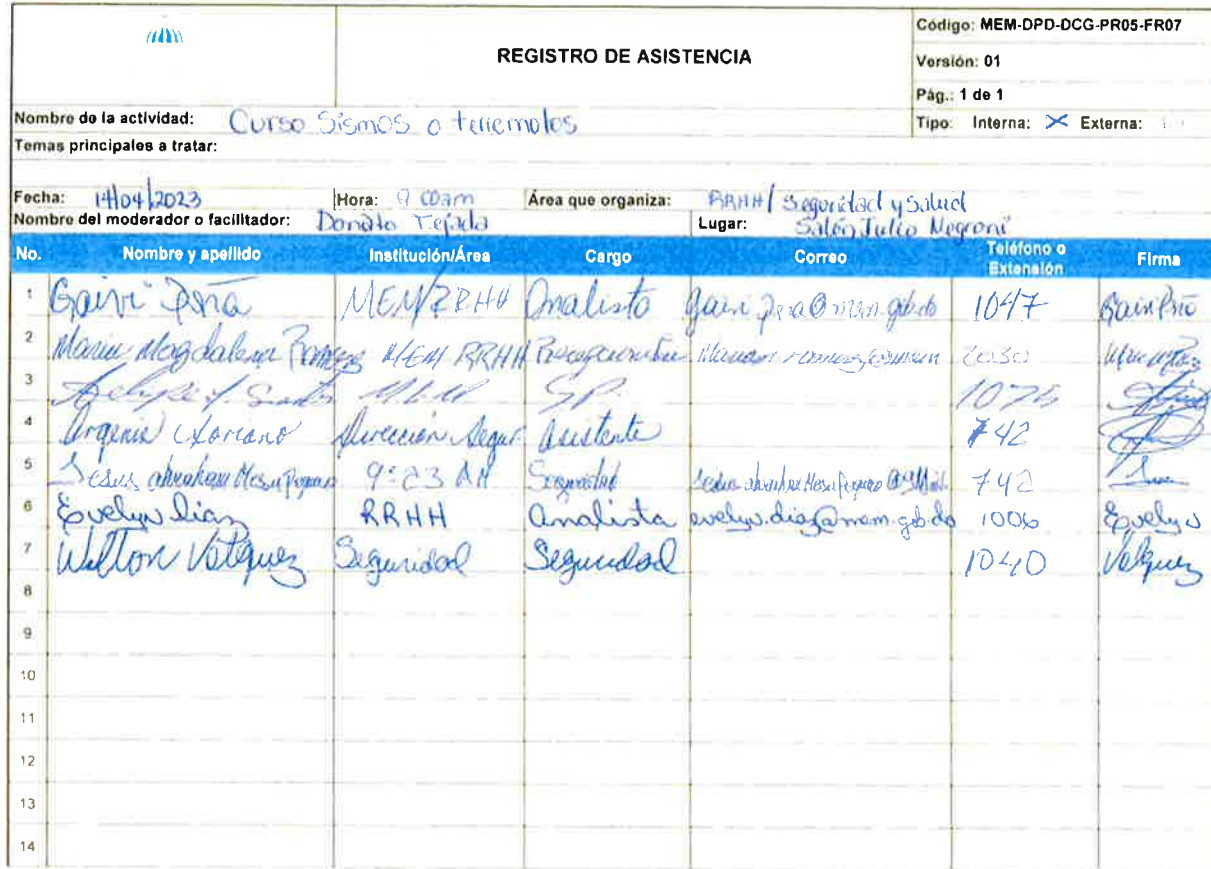 REGISTRO DE ASISTENCIA
Código: MEM-DPD-DCG-PR05-FR07
Versión: 01
Pág.: 1 de 1
Nombre de la actividad: Curso Sismos o terremotos
Tipo: Interna: X Externa:
Temas principales a tratar:
Fecha: 14/04/2023 Hora: 9:00am Área que organiza: RRHH/ Seguridad y Salud
Nombre del moderador o facilitador: Donato Tejada Lugar: Salón Julio Negroni
No. Nombre y apellido Institución/Área Cargo Correo Teléfono o Extensión Firma
1 Peña MEM/RRHH Analista 1047
2 Magdalena MEM RRHH 2030
3 Felipe
4 Soriano Dirección Segur Asistente 742
5 Jesus abraham 9:23 AM Seguridad 742
6 Evelyn Diaz RRHH Analista evelyn.diaz@mem.gob.do 1006 Evelyn
7 Seguridad Seguridad 1040
8
9
10
11
12
13
14